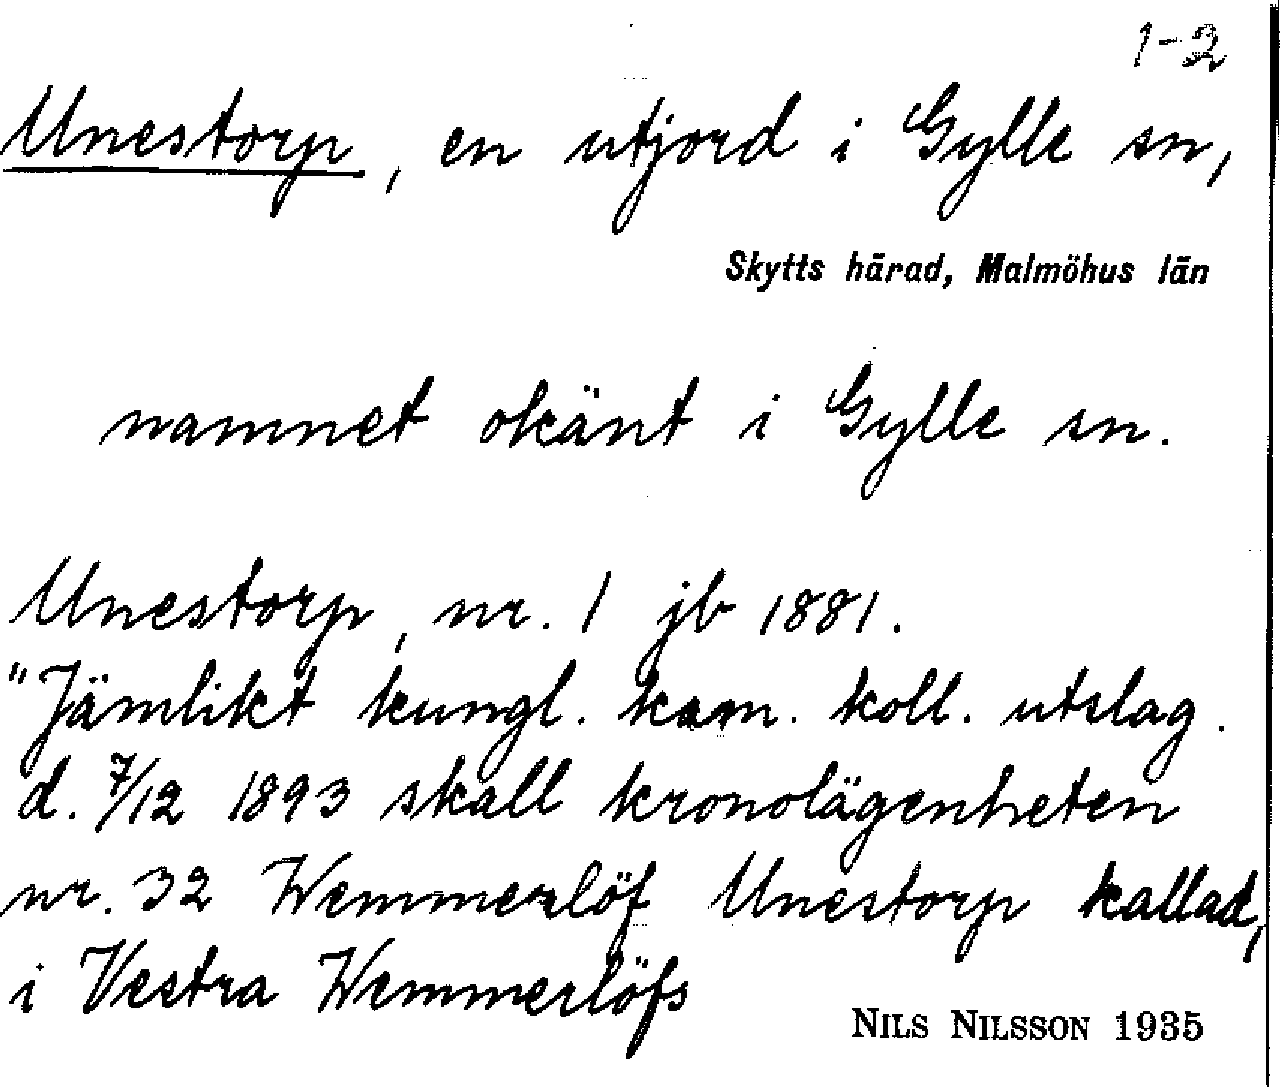 1-2
Unestorp, en utjord i Gylle sn,
Skytts härad, Malmöhus län
namnet okänt i Gylle sn.
Unestorp, nr. 1 jb 1881.
"Jämlikt kungl. kam. koll. utslag.
d. 7/12 1893 skall kronolägenheten
nr. 32 Wemmerlöf Unestorp kallad,
i Vestra Wemmerlöfs
NILS NILSSON 1935